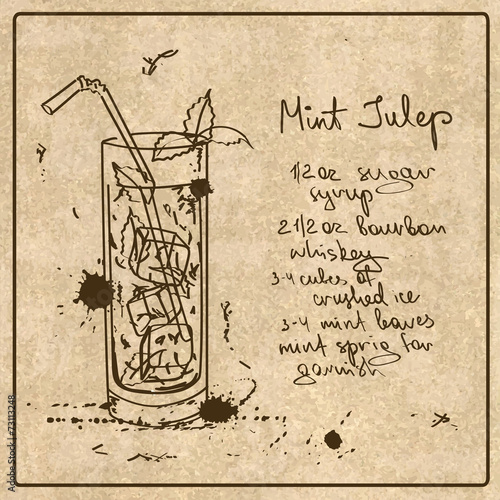 Mint Julep
1/2 oz sugar
syrup
2 1/2 oz Bourbon
whiskey
3-4 cubes of
crushed ice
3-4 mint leaves
mint sprig for
garnish
Adobe Stock | #73113248